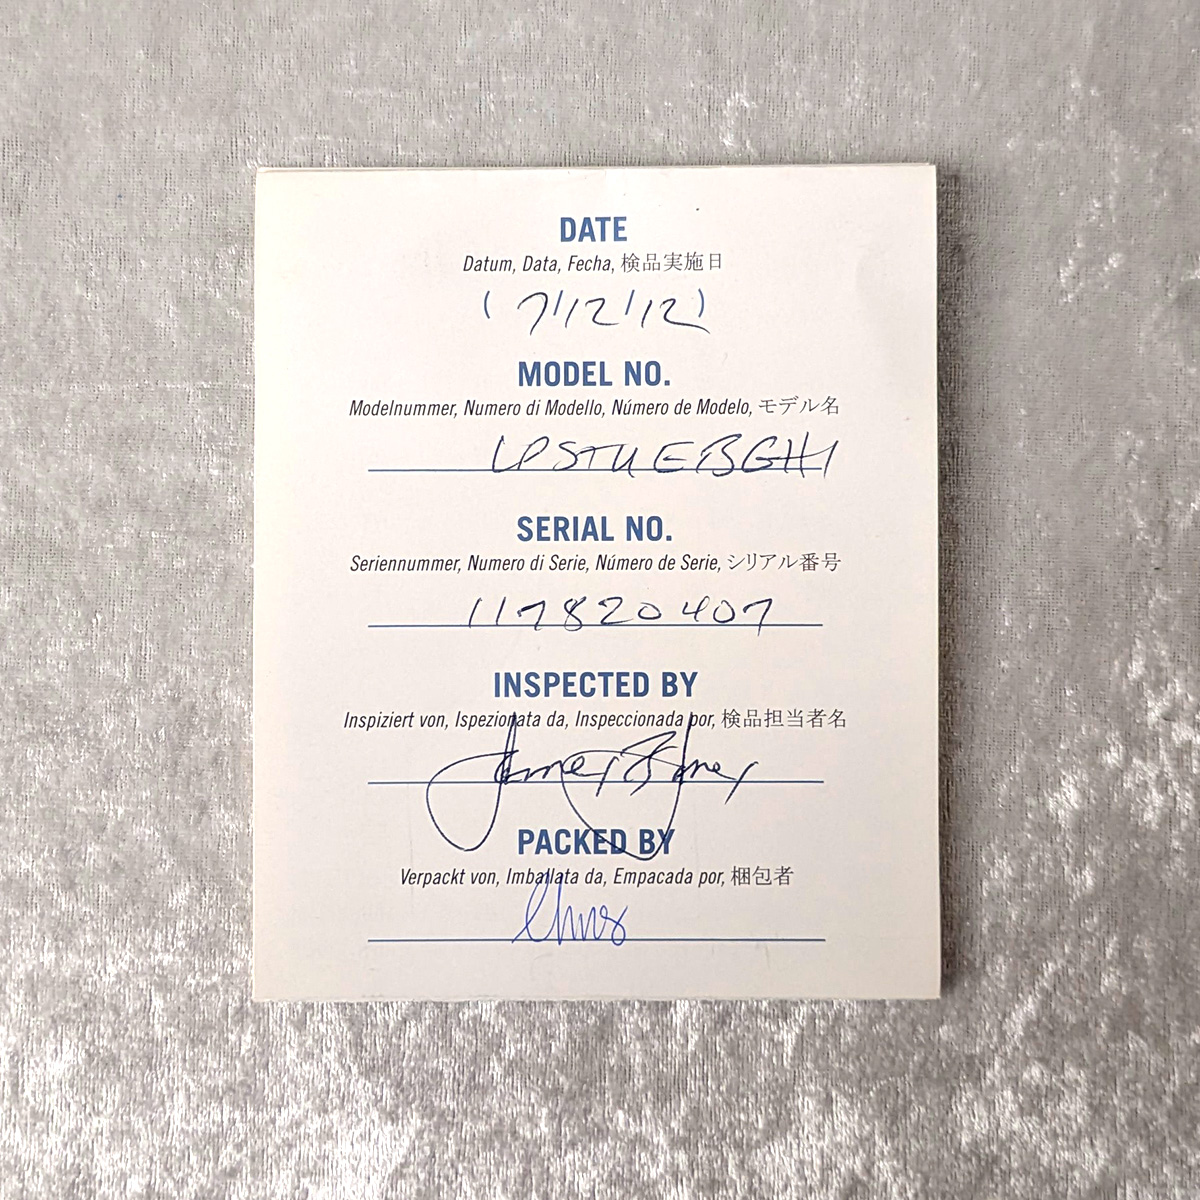 DATE
Datum, Data, Fecha, 検品実施日
( 7/12/12 )
MODEL NO.
Modelnummer, Numero di Modello, Número de Modelo, モデル名
LPSTUEBGH1
SERIAL NO.
Seriennummer, Numero di Serie, Número de Serie, シリアル番号
117820407
INSPECTED BY
Inspiziert von, Ispezionata da, Inspeccionada por, 検品担当者名
PACKED BY
Verpackt von, Imballata da, Empacada por, 梱包者